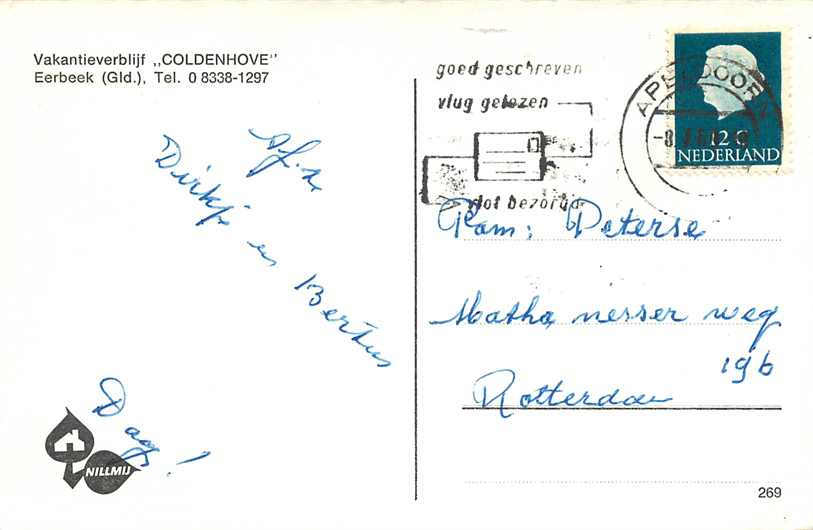 Vakantieverblijf „COLDENHOVE”
Eerbeek (Gld.), Tel. 0 8338-1297
Afz
Dirkje en Bertus
Dag!
NILLMIJ
goed geschreven
vlug gelezen
vlot bezorgd
APELDOORN
12 C
NEDERLAND
Fam: Peterse
Mathenesser weg
19b
Rotterdam
269